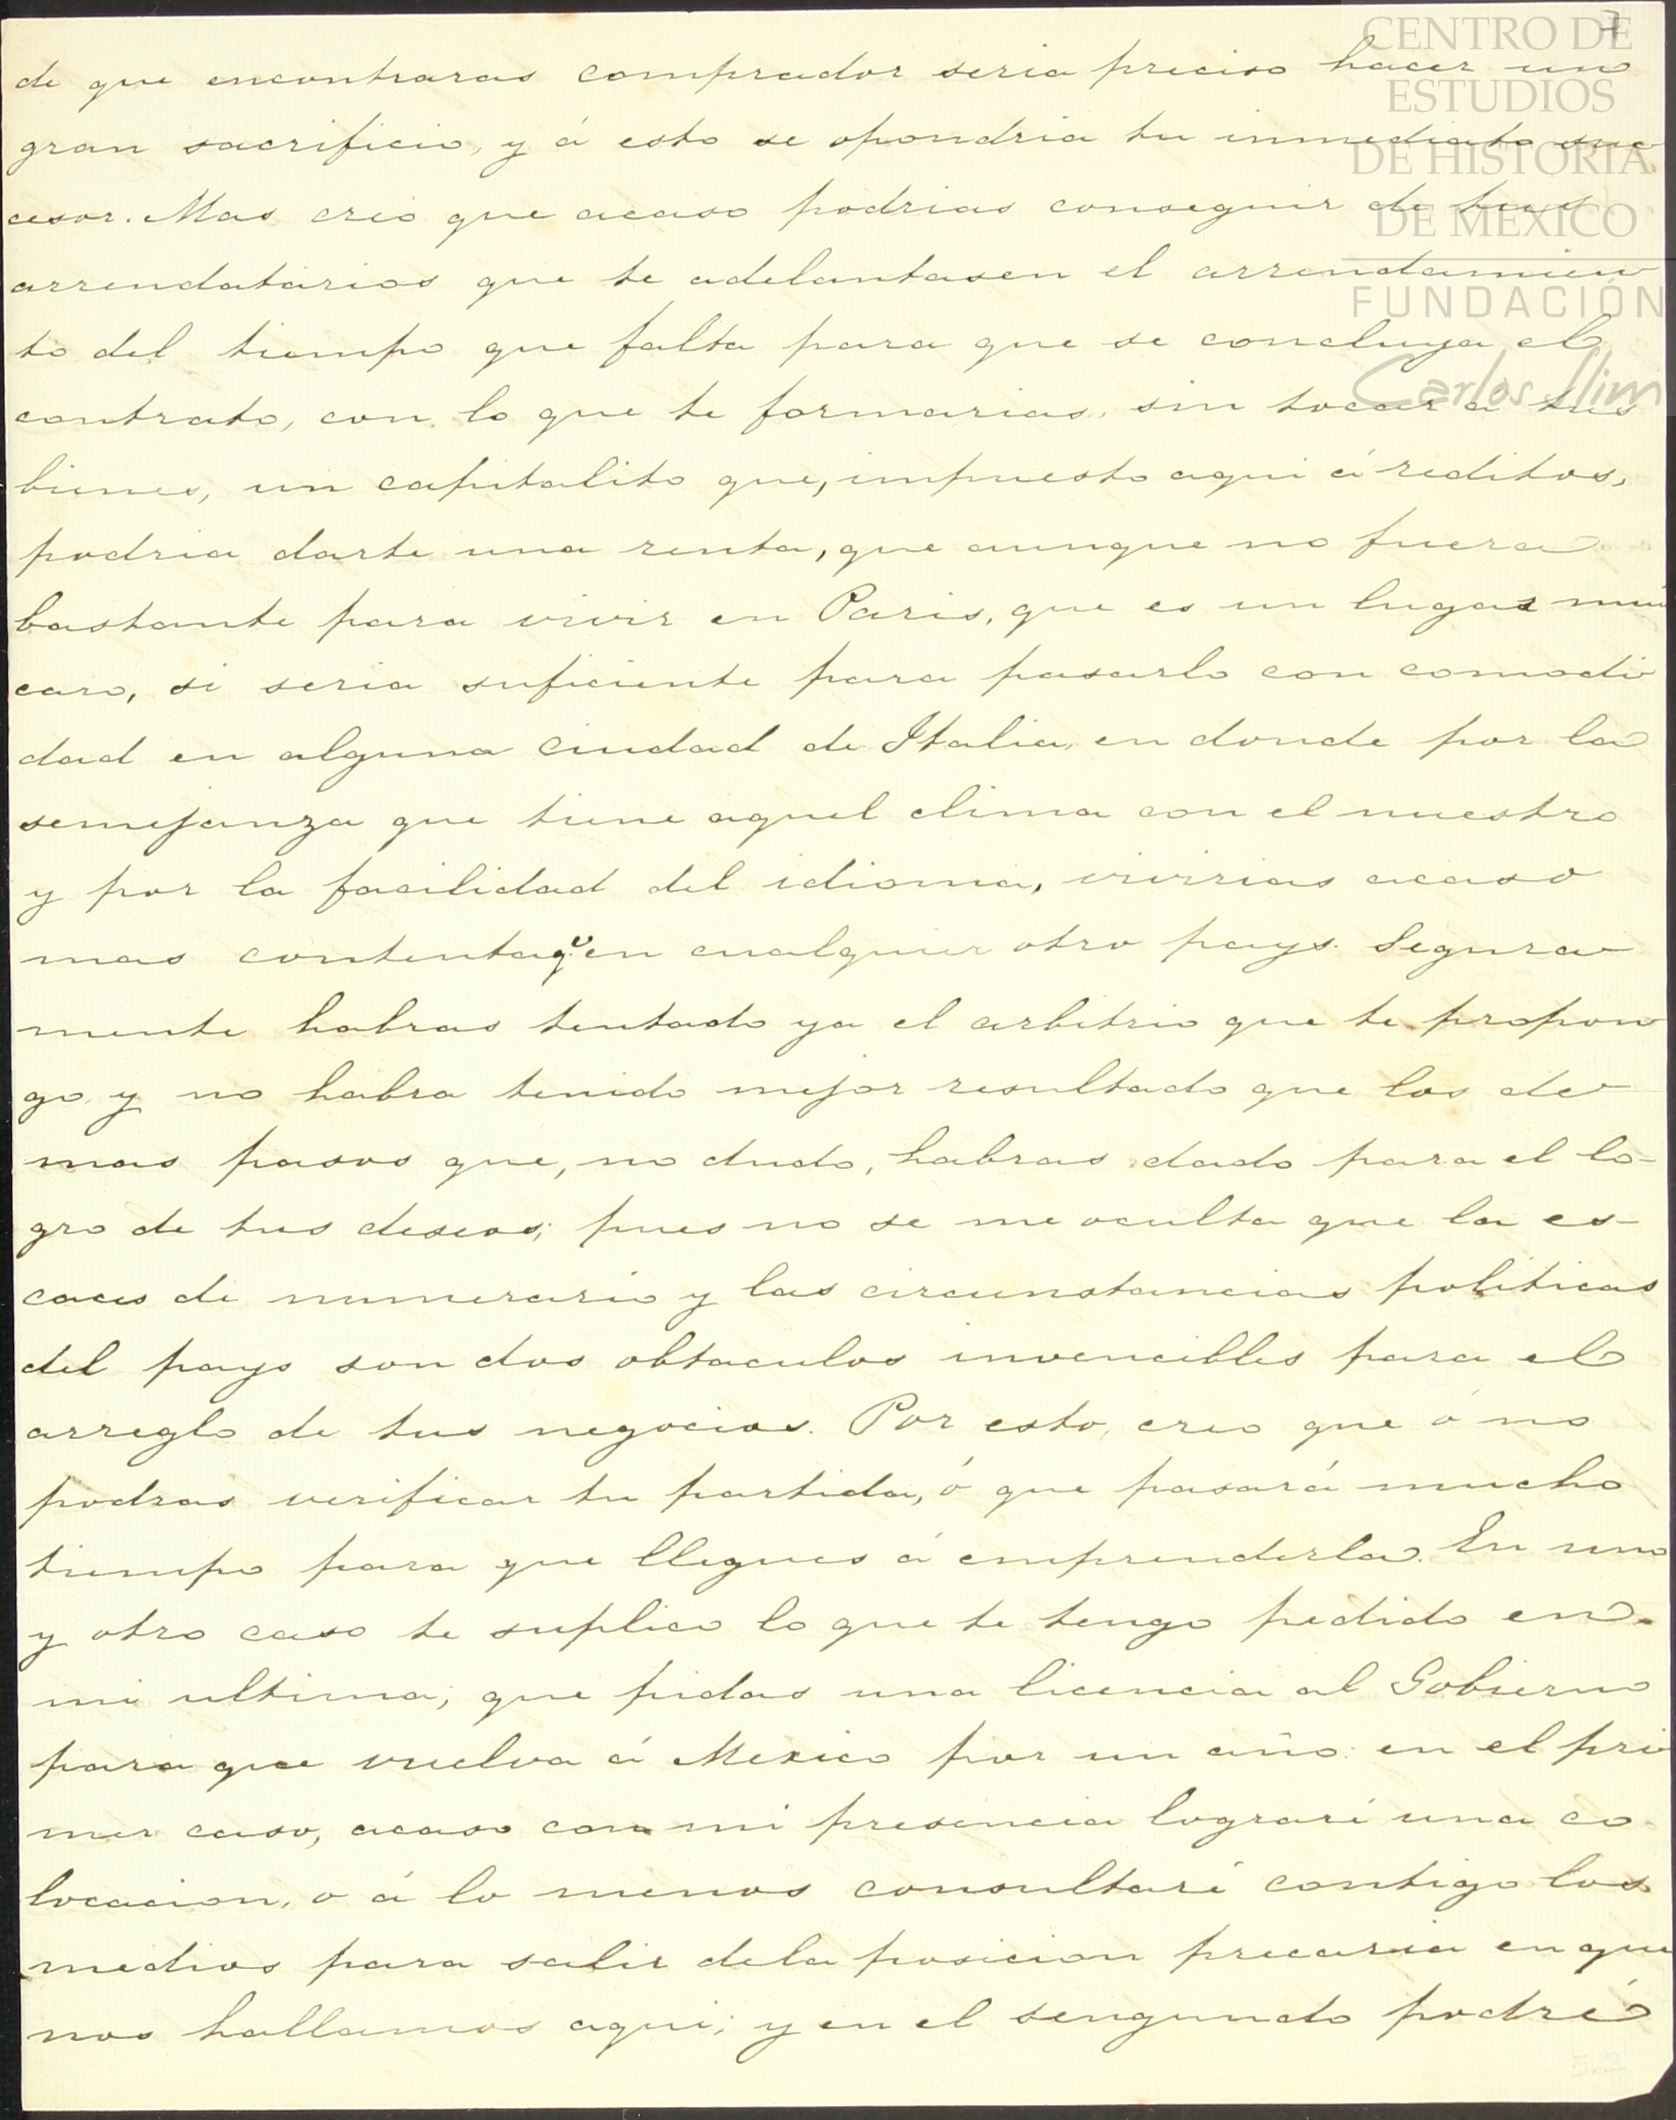 7
CENTRO DE
ESTUDIOS
DE HISTORIA
DE MEXICO
FUNDACIÓN
Carlos Slim
de que encontraras comprador seria preciso hacer un
gran sacrificio, y á esto se opondria tu inmediato suc
cesor. Mas creo que acaso podrias conseguir de tus
arrendatarios que te adelantasen el arrendamien
to del tiempo que falta para que se concluya el
contrato, con lo que te formarias, sin tocar a tus
bienes, un capitalito que, impuesto aqui á reditos,
podria darte una renta, que aunque no fuera
bastante para vivir en Paris, que es un lugar mui
caro, si seria suficiente para pasarlo con comodi
dad en alguna ciudad de Italia, en donde por la
semejanza que tiene aquel clima con el nuestro
y por la facilidad del idioma, vivirias acaso
mas contenta qe en cualquier otro pays. Segura
mente habras tentado ya el arbitrio que te propon
go y no habra tenido mejor resultado que los de
mas pasos que, no dudo, habras dado para el lo-
gro de tus deseos; pues no se me oculta que la es-
caces de numerario y las circunstancias politicas
del pays son dos obtaculos invencibles para el
arreglo de tus negocios. Por esto, creo que ó no
podras verificar tu partida, ó que pasará mucho
tiempo para que llegues á emprenderla. En uno
y otro caso te suplico lo que te tengo pedido en
mi ultima; que pidas una licencia al Gobierno
para que vuelva á Mexico por un año: en el pri
mer caso, acaso con mi presencia lograré una co
locacion, o á lo menos consultaré contigo los
medios para salir dela posicion precaria en que
nos hallamos aqui; y en el sengundo podré